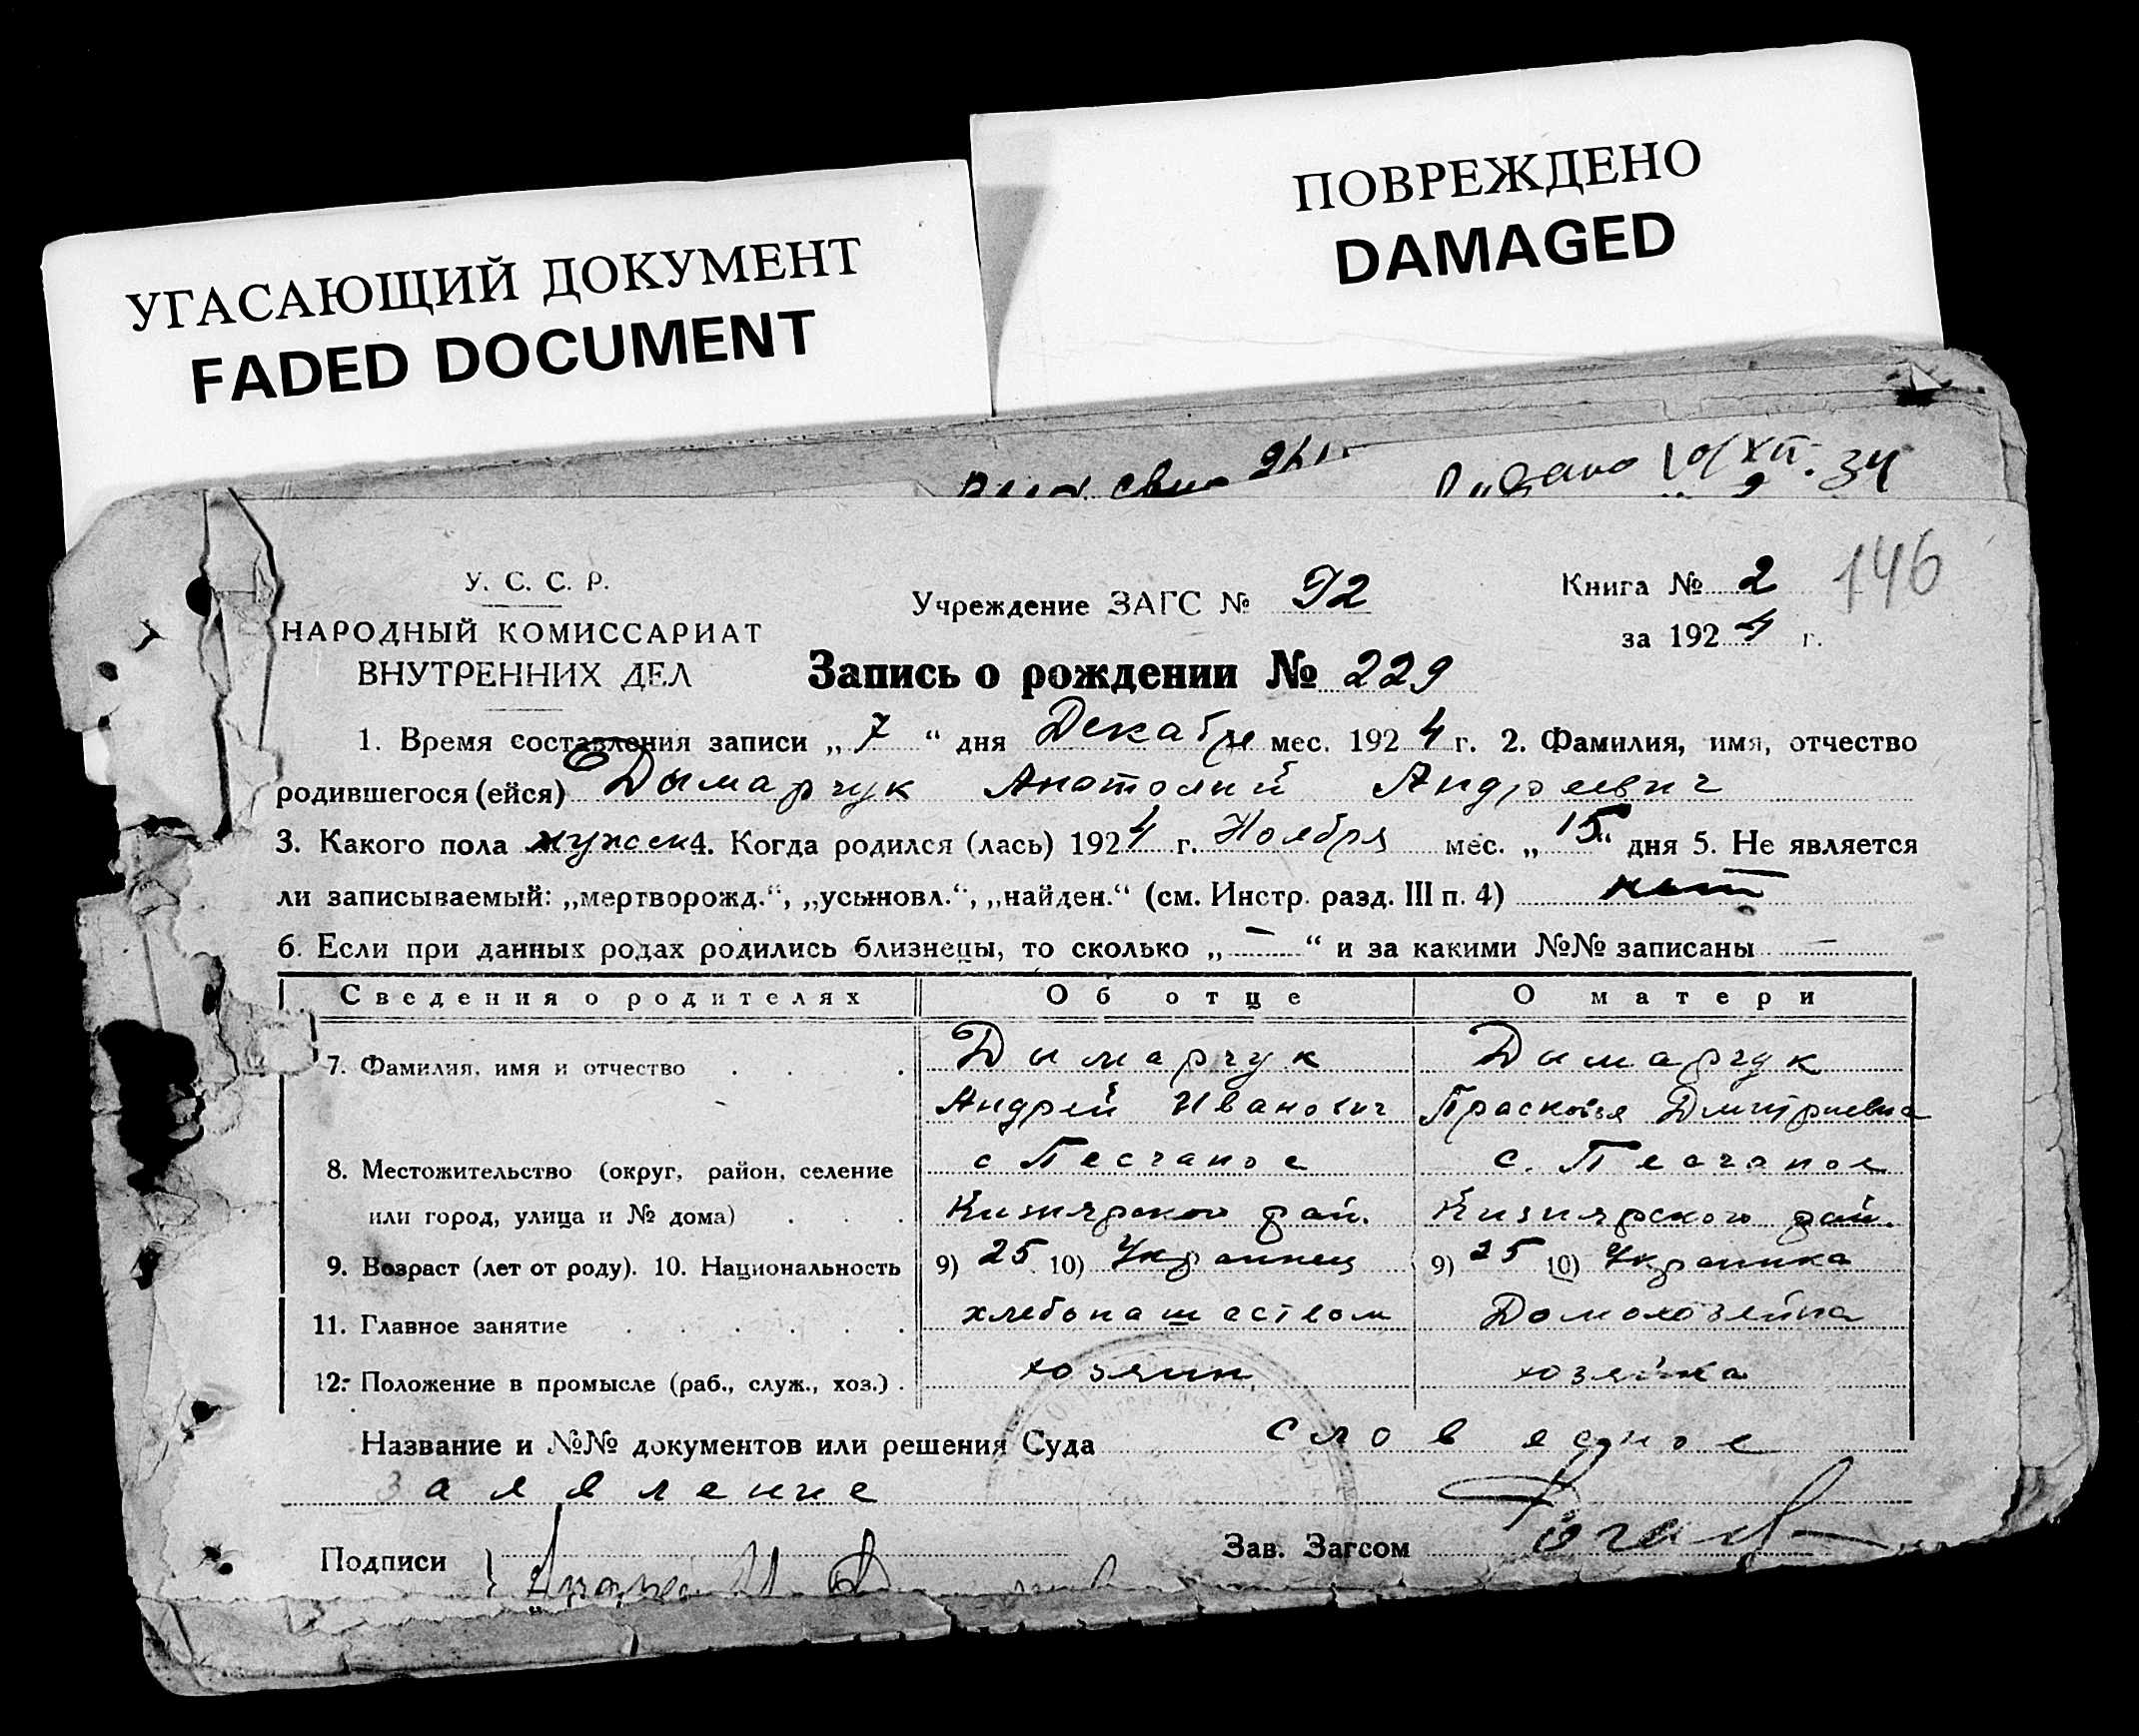 УГАСАЮЩИЙ ДОКУМЕНТ
FADED DOCUMENT
ПОВРЕЖДЕНО
DAMAGED
XII. 34
146
У. С. С. Р.
НАРОДНЫЙ КОМИССАРИАТ
ВНУТРЕННИХ ДЕЛ
Учреждение ЗАГС № 92
Книга № 2
за 1924 г.
Запись о рождении № 229
1. Время составления записи „ 7 “ дня Декабря мес. 1924 г. 2. Фамилия, имя, отчество
родившегося (ейся) Дымарчук Анатолий Андреевич
3. Какого пола мужск 4. Когда родился (лась) 1924 г. Ноября мес. „ 15 “ дня 5. Не является
ли записываемый: „мертворожд.“, „усыновл.“, „найден.“ (см. Инстр. разд. III п. 4) нет
6. Если при данных родах родились близнецы, то сколько „ — “ и за какими №№ записаны —
Сведения о родителях Об отце О матери
7. Фамилия, имя и отчество . . . . Дымарчук Дымарчук
Андрей Иванович Прасковья Дмитриевна
8. Местожительство (округ, район, селение с Песчаное с. Песчаное
или город, улица и № дома) . . . Кизиярского рай. Кизиярского рай.
9. Возраст (лет от роду). 10. Национальность 9) 25 10) Украинец 9) 25 10) Украинка
11. Главное занятие . . . . . . хлебопашеством Домохозяйка
12. Положение в промысле (раб., служ., хоз.) . хозяин хозяйка
Название и №№ документов или решения Суда словесное
заявление
Подписи } Зав. Загсом